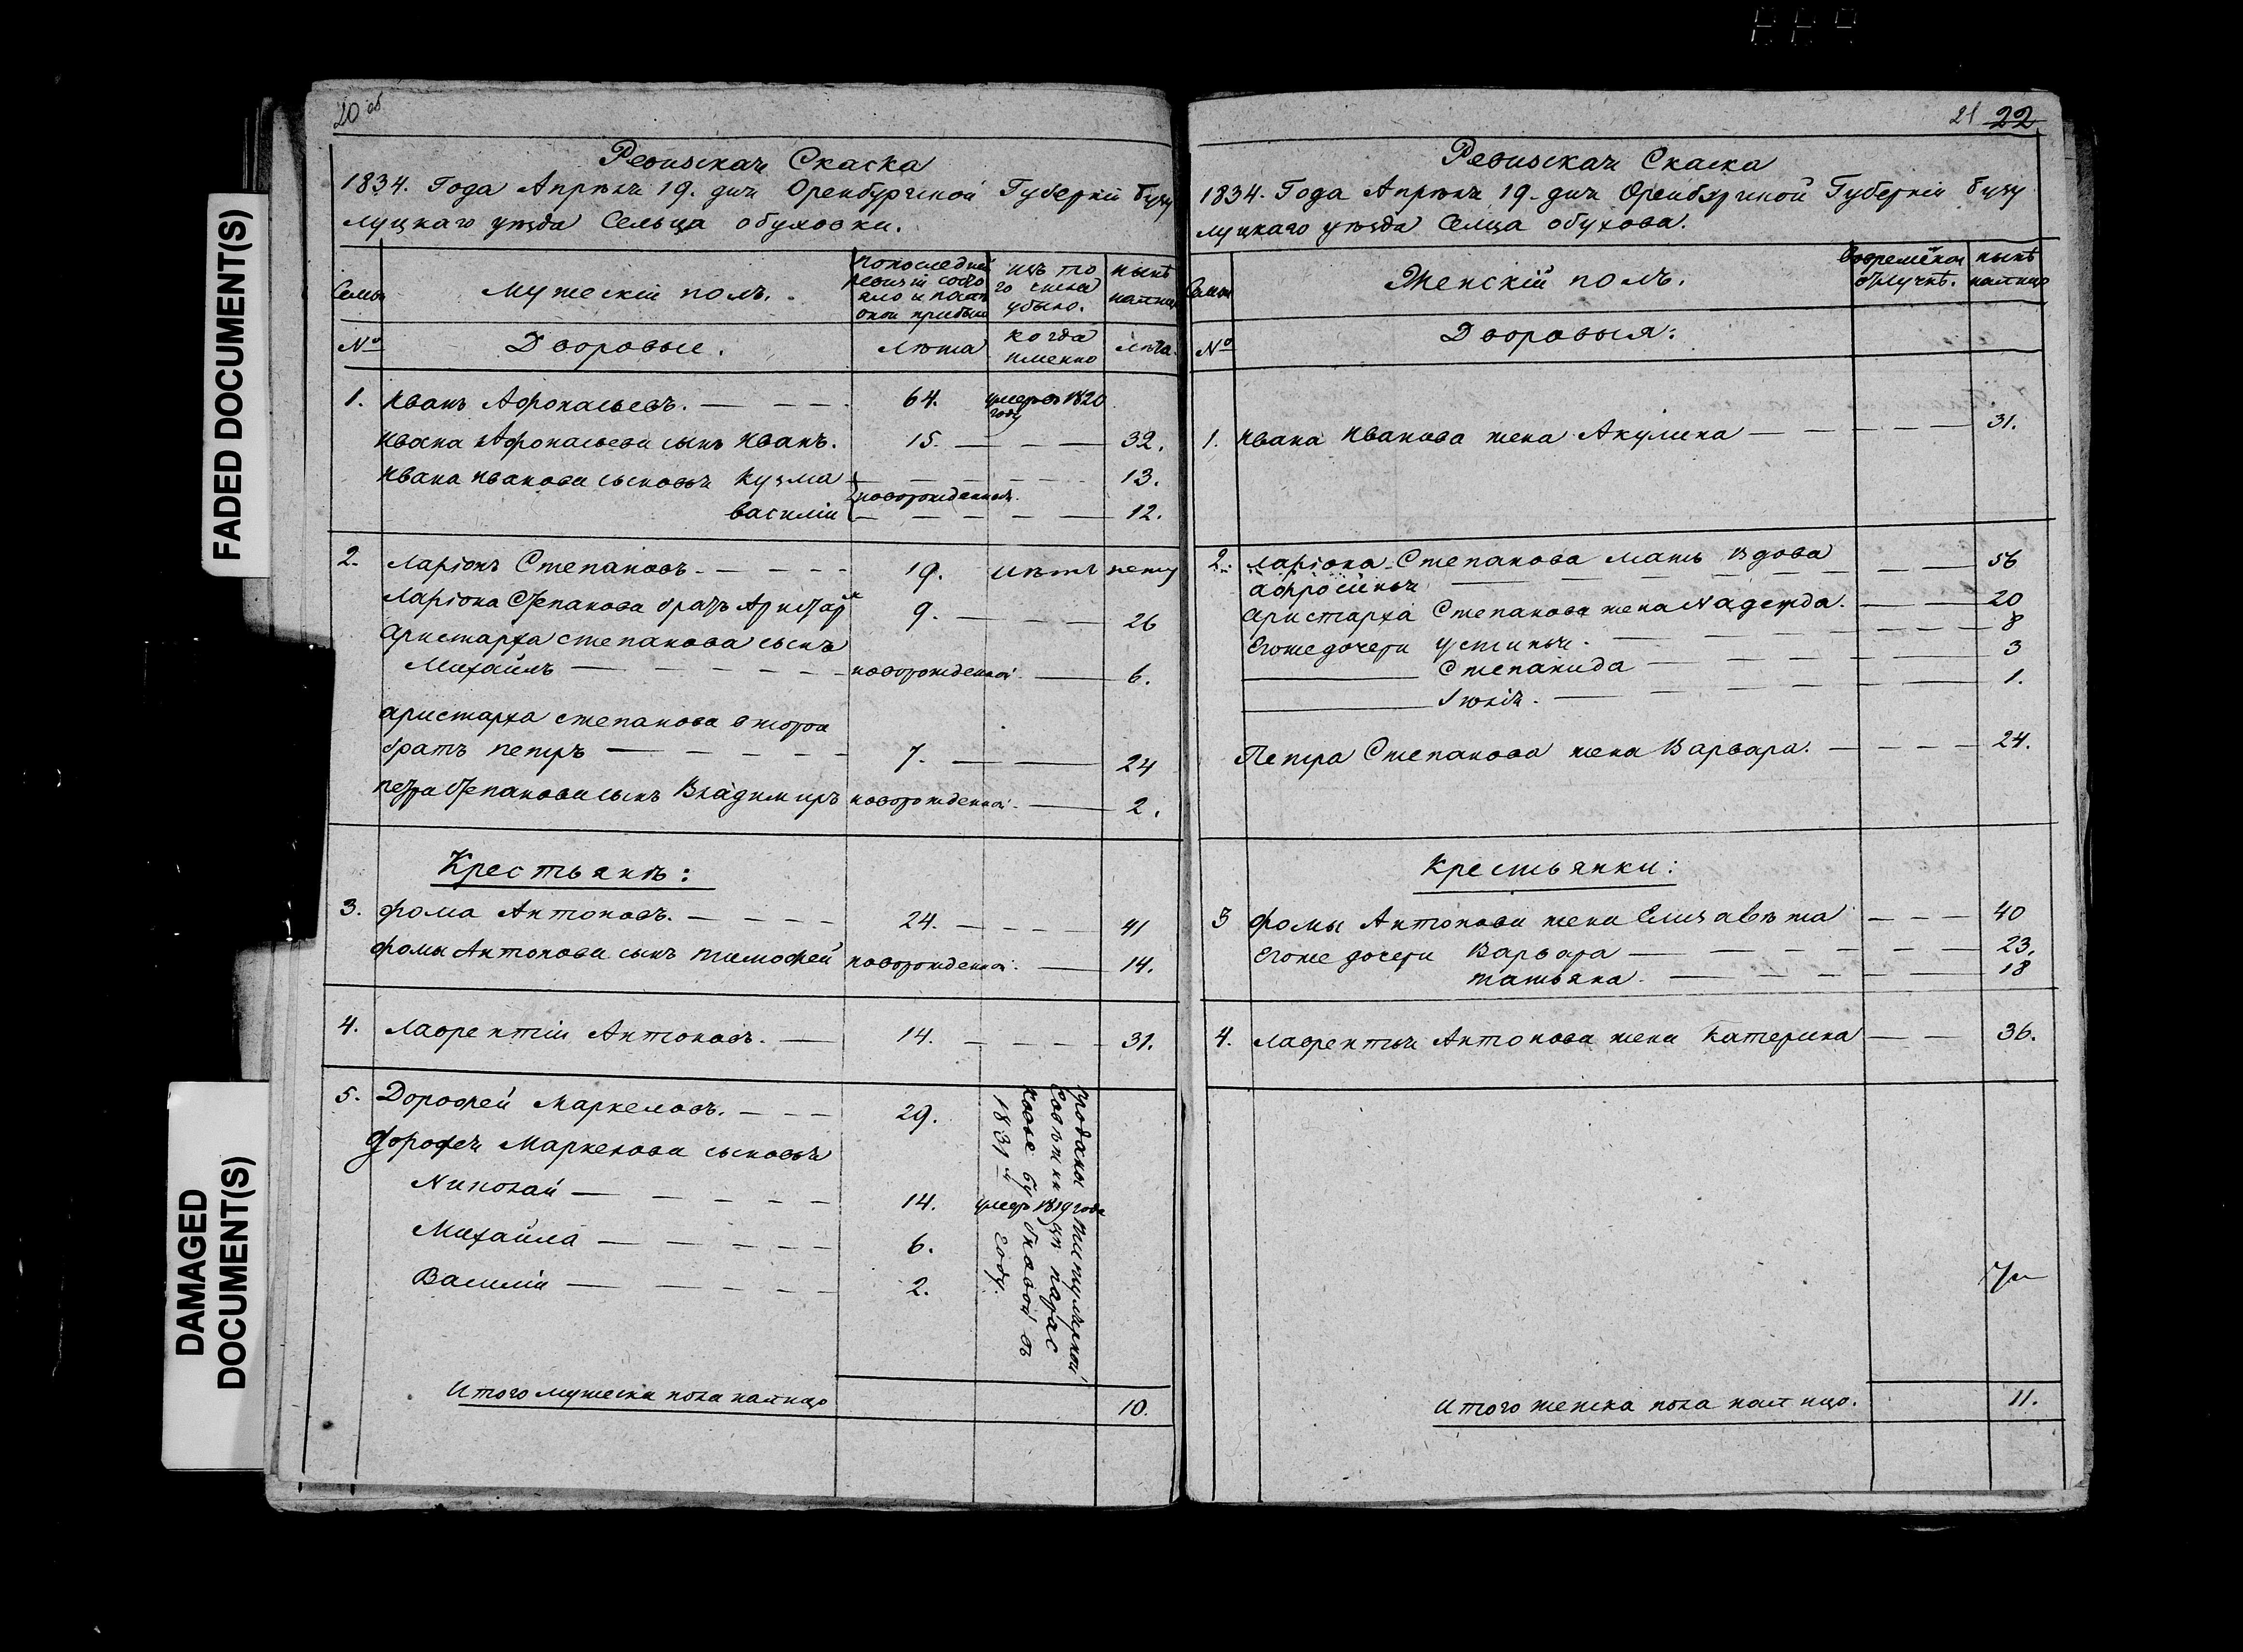 FADED DOCUMENT(S)
DAMAGED
DOCUMENT(S)
20 об
Ревизская Скаска
1834. Года Апрѣля 19. дня Оренбургской Губерніи Бузу
луцкаго уѣзда Сельца обуховки.
Семьи
Мужескій полъ.
попоследней
ревизіи состо
яло и посля
оной прибыло
изъ то
го числа
убыло.
нынѣ
налицо
№
Дворовые.
лѣта
когда
имянно
лѣта.
1. Иванъ Афонасьевъ. 64. умеръ въ 1820
году
Ивана Афонасьева сынъ Иванъ. 15. 32.
Ивана Иванова сыновья Кузма 13.
новорожденныя.
Василіи 12.
2. Ларіонъ Степановъ. 19. нету
Ларіона Степанова братъ Аристарх 9. 26
Аристарха степанова сынъ
Михаилъ новорожденной 6.
аристарха степанова второй
братъ петръ 7. 24
петра Степанова сынъ Владимиръ новорожденной 2.
Крестьянѣ:
3. фома Антоновъ. 24. 41
фомы Антонова сынъ тимофей новорожденной 14.
4. Лаврентіи Антоновъ. 14. 31.
5. Дорофей Маркеловъ. 29.
Дорофея Маркелова сыновья
Николай 14. умеръ 1819 года
Михаила 6.
Василіи 2.
проданы титулярной
Советни цѣ парас
ковье
1831 году.
Итого мужеска пола налицо 10.
21 22
Ревизская Скаска
1834. Года Апрѣля 19. дня Оренбургской Губерніи Бузу
луцкаго уѣзда Селца обухова.
Семьи
Женскій полъ.
Вовременной
отлучкѣ.
нынѣ
налицо
№
Дворовыя:
1. Ивана Иванова жена Акулина 31.
2. Ларіона Степанова мать вдова 56
афросинья
Аристарха Степанова жена Надежда. 20
Егоже дочери устинья. 8
Степанида 3
1.
Петра Степанова жена Варвара. 24.
Крестьянки:
3 фомы Антонова жена Елизавѣта 40
Егоже дочери Варвара 23.
татьяна. 18
4. Лаврентья Антонова жена Катерина 36.
Итого женска пола налицо. 11.